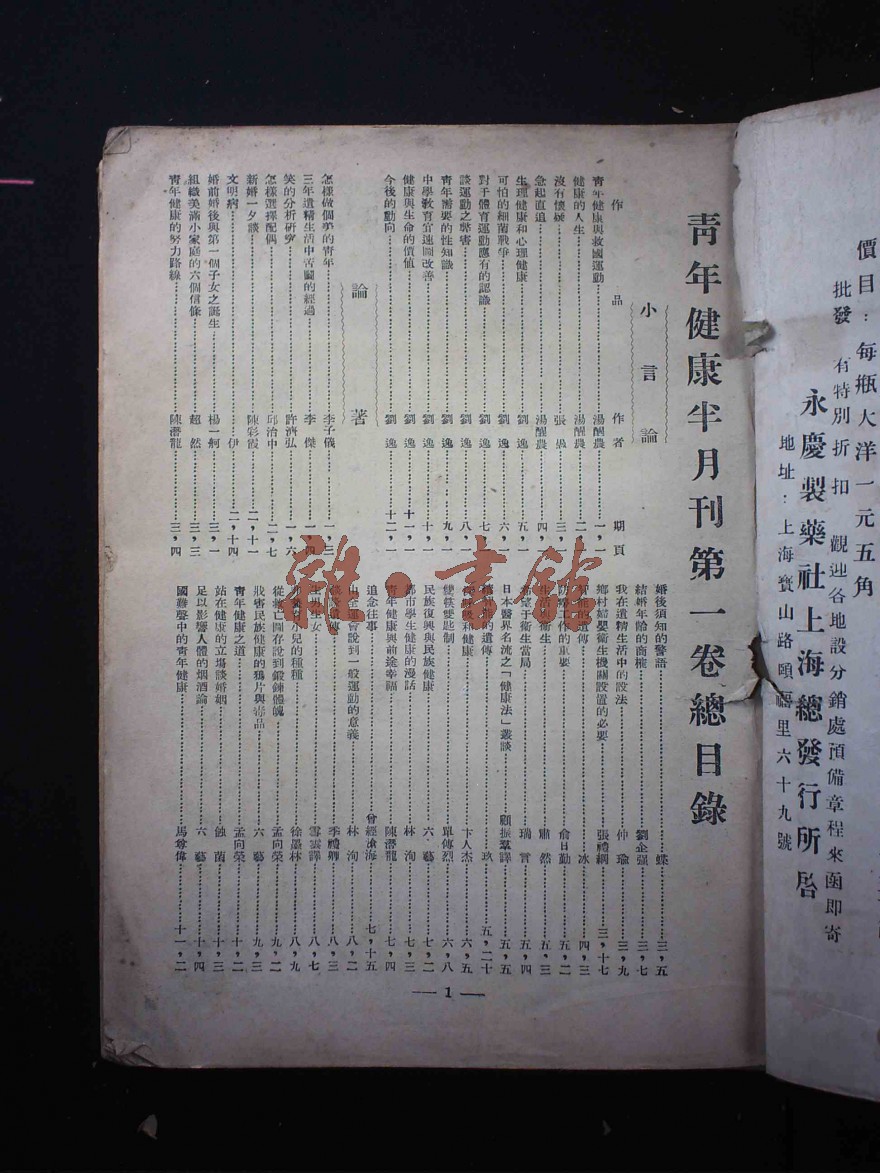 價目：每瓶大洋一元五角
批發　有特別折扣　觀迎各地設分銷處預備章程來函即寄
永慶製藥社上海總發行所啓
地址：上海寶山路頤福里六十九號
青年健康半月刊第一卷總目錄
小言論
作品　作者　期頁
青年健康與救國運動　湯醒農　一，一
健康的人生　湯醒農　二，一
沒有懷疑　張　三，一
急起直追　湯醒農　四，一
生理健康和心理健康　劉逸　五，一
可怕的細菌戰爭　劉逸　六，一
對于體育運動應有的認識　劉逸　七，一
談運動之弊害　劉逸　八，一
青年需要的性知識　劉逸　九，一
中學教育宜速圖改善　劉逸　十，一
健康與生命的價值　劉逸　十一，一
今後的動向　劉逸　十二，一
論著
怎樣做個夠的青年　李子儀　一，三
三年遺精生活中苦鬭的經過　李傑　一，四
笑的分析研究　許濟弘　一，六
怎樣選擇配偶　邱治中　二，七
新婚一夕談　陳彩霞　二，十一
文明病　伊　二，十四
婚前婚後與第一個子女之誕生　楊一舸　三，一
組織美滿小家庭的六個信條　超然　三，三
青年健康的努力路線　陳潛龍　三，四
婚後須知的警語　蝶　三，五
結婚年齡的商榷　劉企强　三，七
我在遺精生活中的設法　仲瑜　三，九
鄉村婦嬰衛生機關設置的必要　張禮綱　三，十七
的遺傳　冰　四，三
防癆工作的重要　俞日勤　五，二
生活與衛生　肅然　五，三
希望于衛生當局　瑞言　五，四
日本醫界名流之「健康法」叢談　顧振羣譯　五，五
的遺傳　玖　五，二十
和健康　卞人杰　六，五
雙筷雙匙制　單傳烈　六，八
民族復興與民族健康　六藝　七，二
都市學生健康的漫話　林洵　七，三
青年健康與前途幸福　陳潛龍　七，四
追念往事　曾經滄海　七，十五
由全運會說到一般運動的意義　林洵　八，二
談遺傳　季禮卿　八，三
生男生女　雪雲譯　八，七
小兒的種種　徐墨林　八，九
從救亡圖存說到鍛鍊體魄　孟向榮　九，二
戕害民族健康的鴉片與毒品　六藝　九，三
青年健康之道　孟向榮　十，二
站在健康的立場談婚姻　蝕蘭　十，三
足以影響人體的烟酒論　六藝　十，四
國難聲中的青年健康　馬翁偉　十一，二
— 1 —
雜·書館